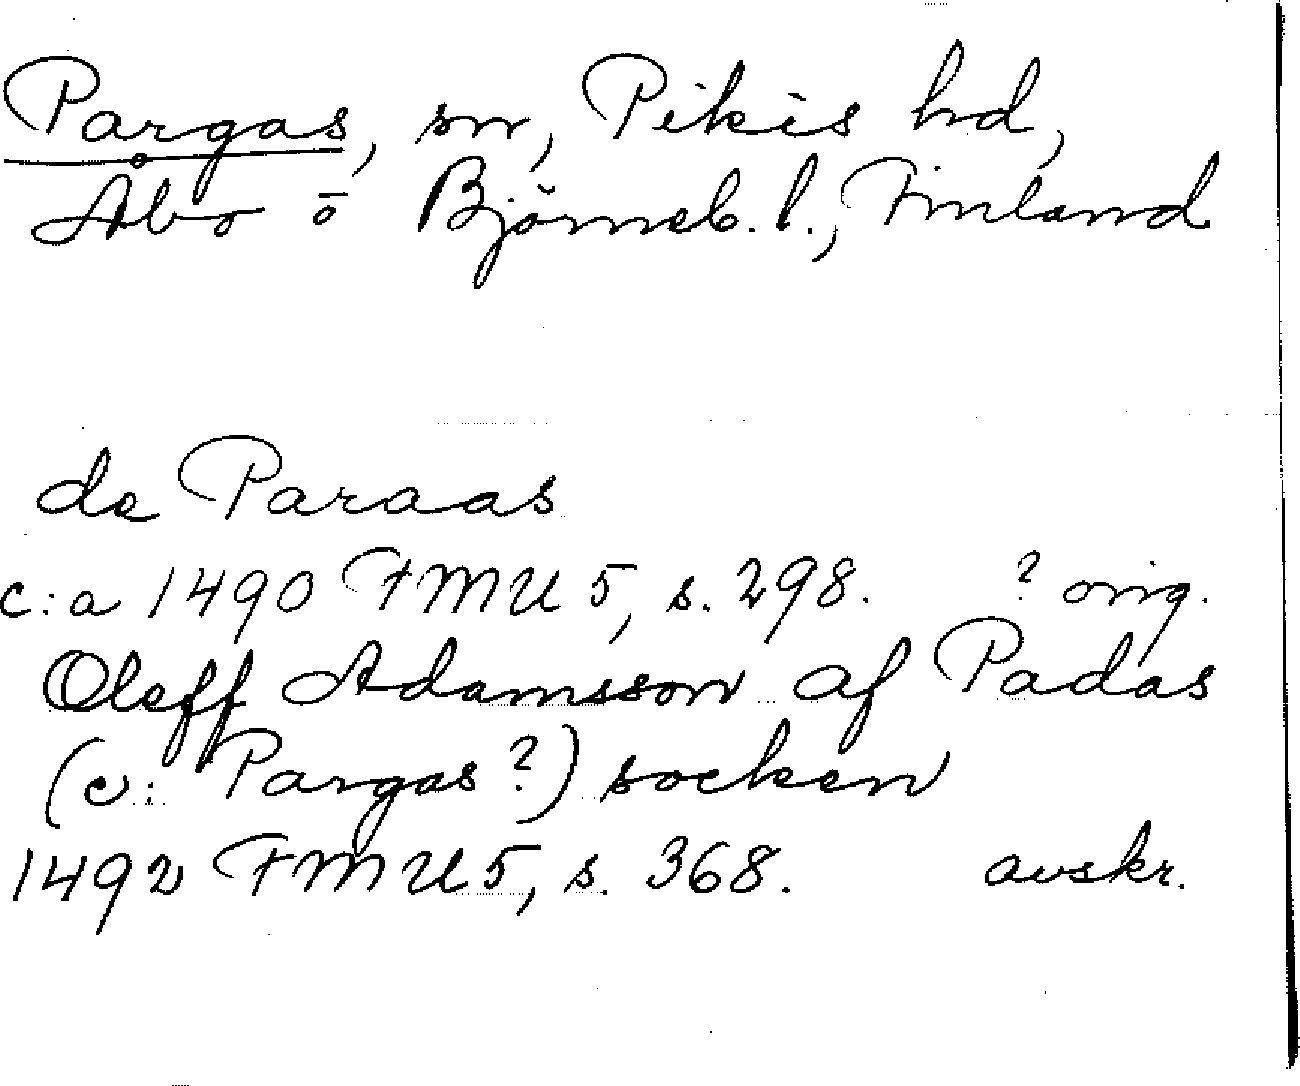 Pargas, sn, Pikis hd,
Åbo o Björneb. l., Finland
de Paraas
c:a 1490 FMU 5, s. 298. ? orig.
Oleff Adamsson af Padas
(ɔ: Pargas?) socken
1492 FMU 5, s. 368. avskr.